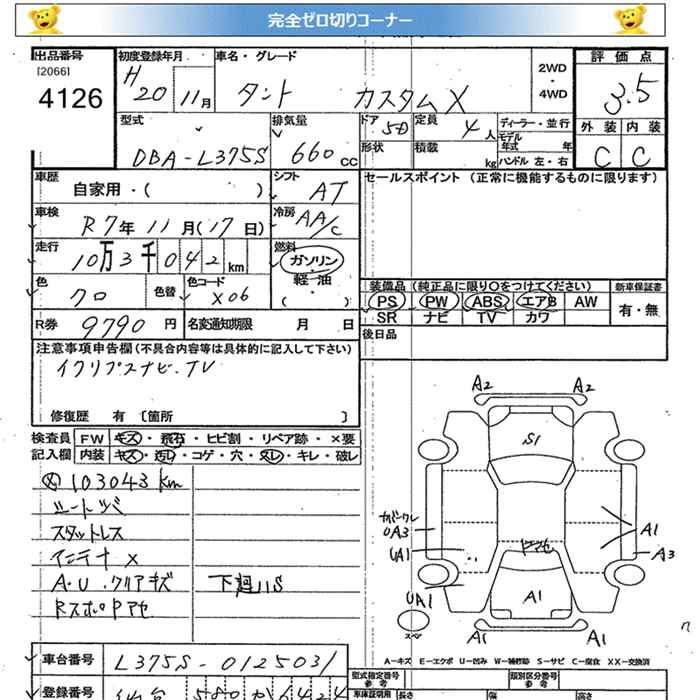 完全ゼロ切りコーナー
出品番号 初度登録年月 車名・グレード 2WD・4WD 評価点
[2066]
4126 H20 11月 タント カスタムX 3.5
型式 排気量 ドア 5D 定員 4人 ディーラー・並行 外装 内装
DBA-L375S 660cc 形状 積載 kg モデル年式 年 ハンドル 左・右 C C
車歴 自家用・( ) シフト AT セールスポイント (正常に機能するものに限ります)
車検 R7年11月(17日) 冷房 AA/C
走行 10万3千042km 燃料 ガソリン・軽油・( )
色 クロ 色替 色コード X06
装備品 (純正品に限り○をつけてください) 新車保証書
PS PW ABS エアB AW 有・無
SR ナビ TV カワ
R券 9790円 名変通知期限 月 日 後日品
注意事項申告欄(不具合内容等は具体的に記入して下さい)
イクリプスナビ.TV
修復歴 有 [箇所 ]
検査員 FW キズ・飛石・ヒビ割・リペア跡・×要
記入欄 内装 キズ・汚レ・コゲ・穴・スレ・キレ・破レ
103043km
シートツバ
スタットレス
アンテナ X
A・U.クリアキズ 下廻リS
RスポロPアセ
A2 A2
S1
UA3 A1
UA1 A3
UA1 A1
スペ A1 A1
A-キズ E-エクボ U-凹み W-補修跡 S-サビ C-腐食 XX-交換済
車台番号 L375S-0125031
型式指定番号 参考 類別区分番号 参考
登録番号 仙台 580 6424
車庫証明用 長さ 幅 高さ